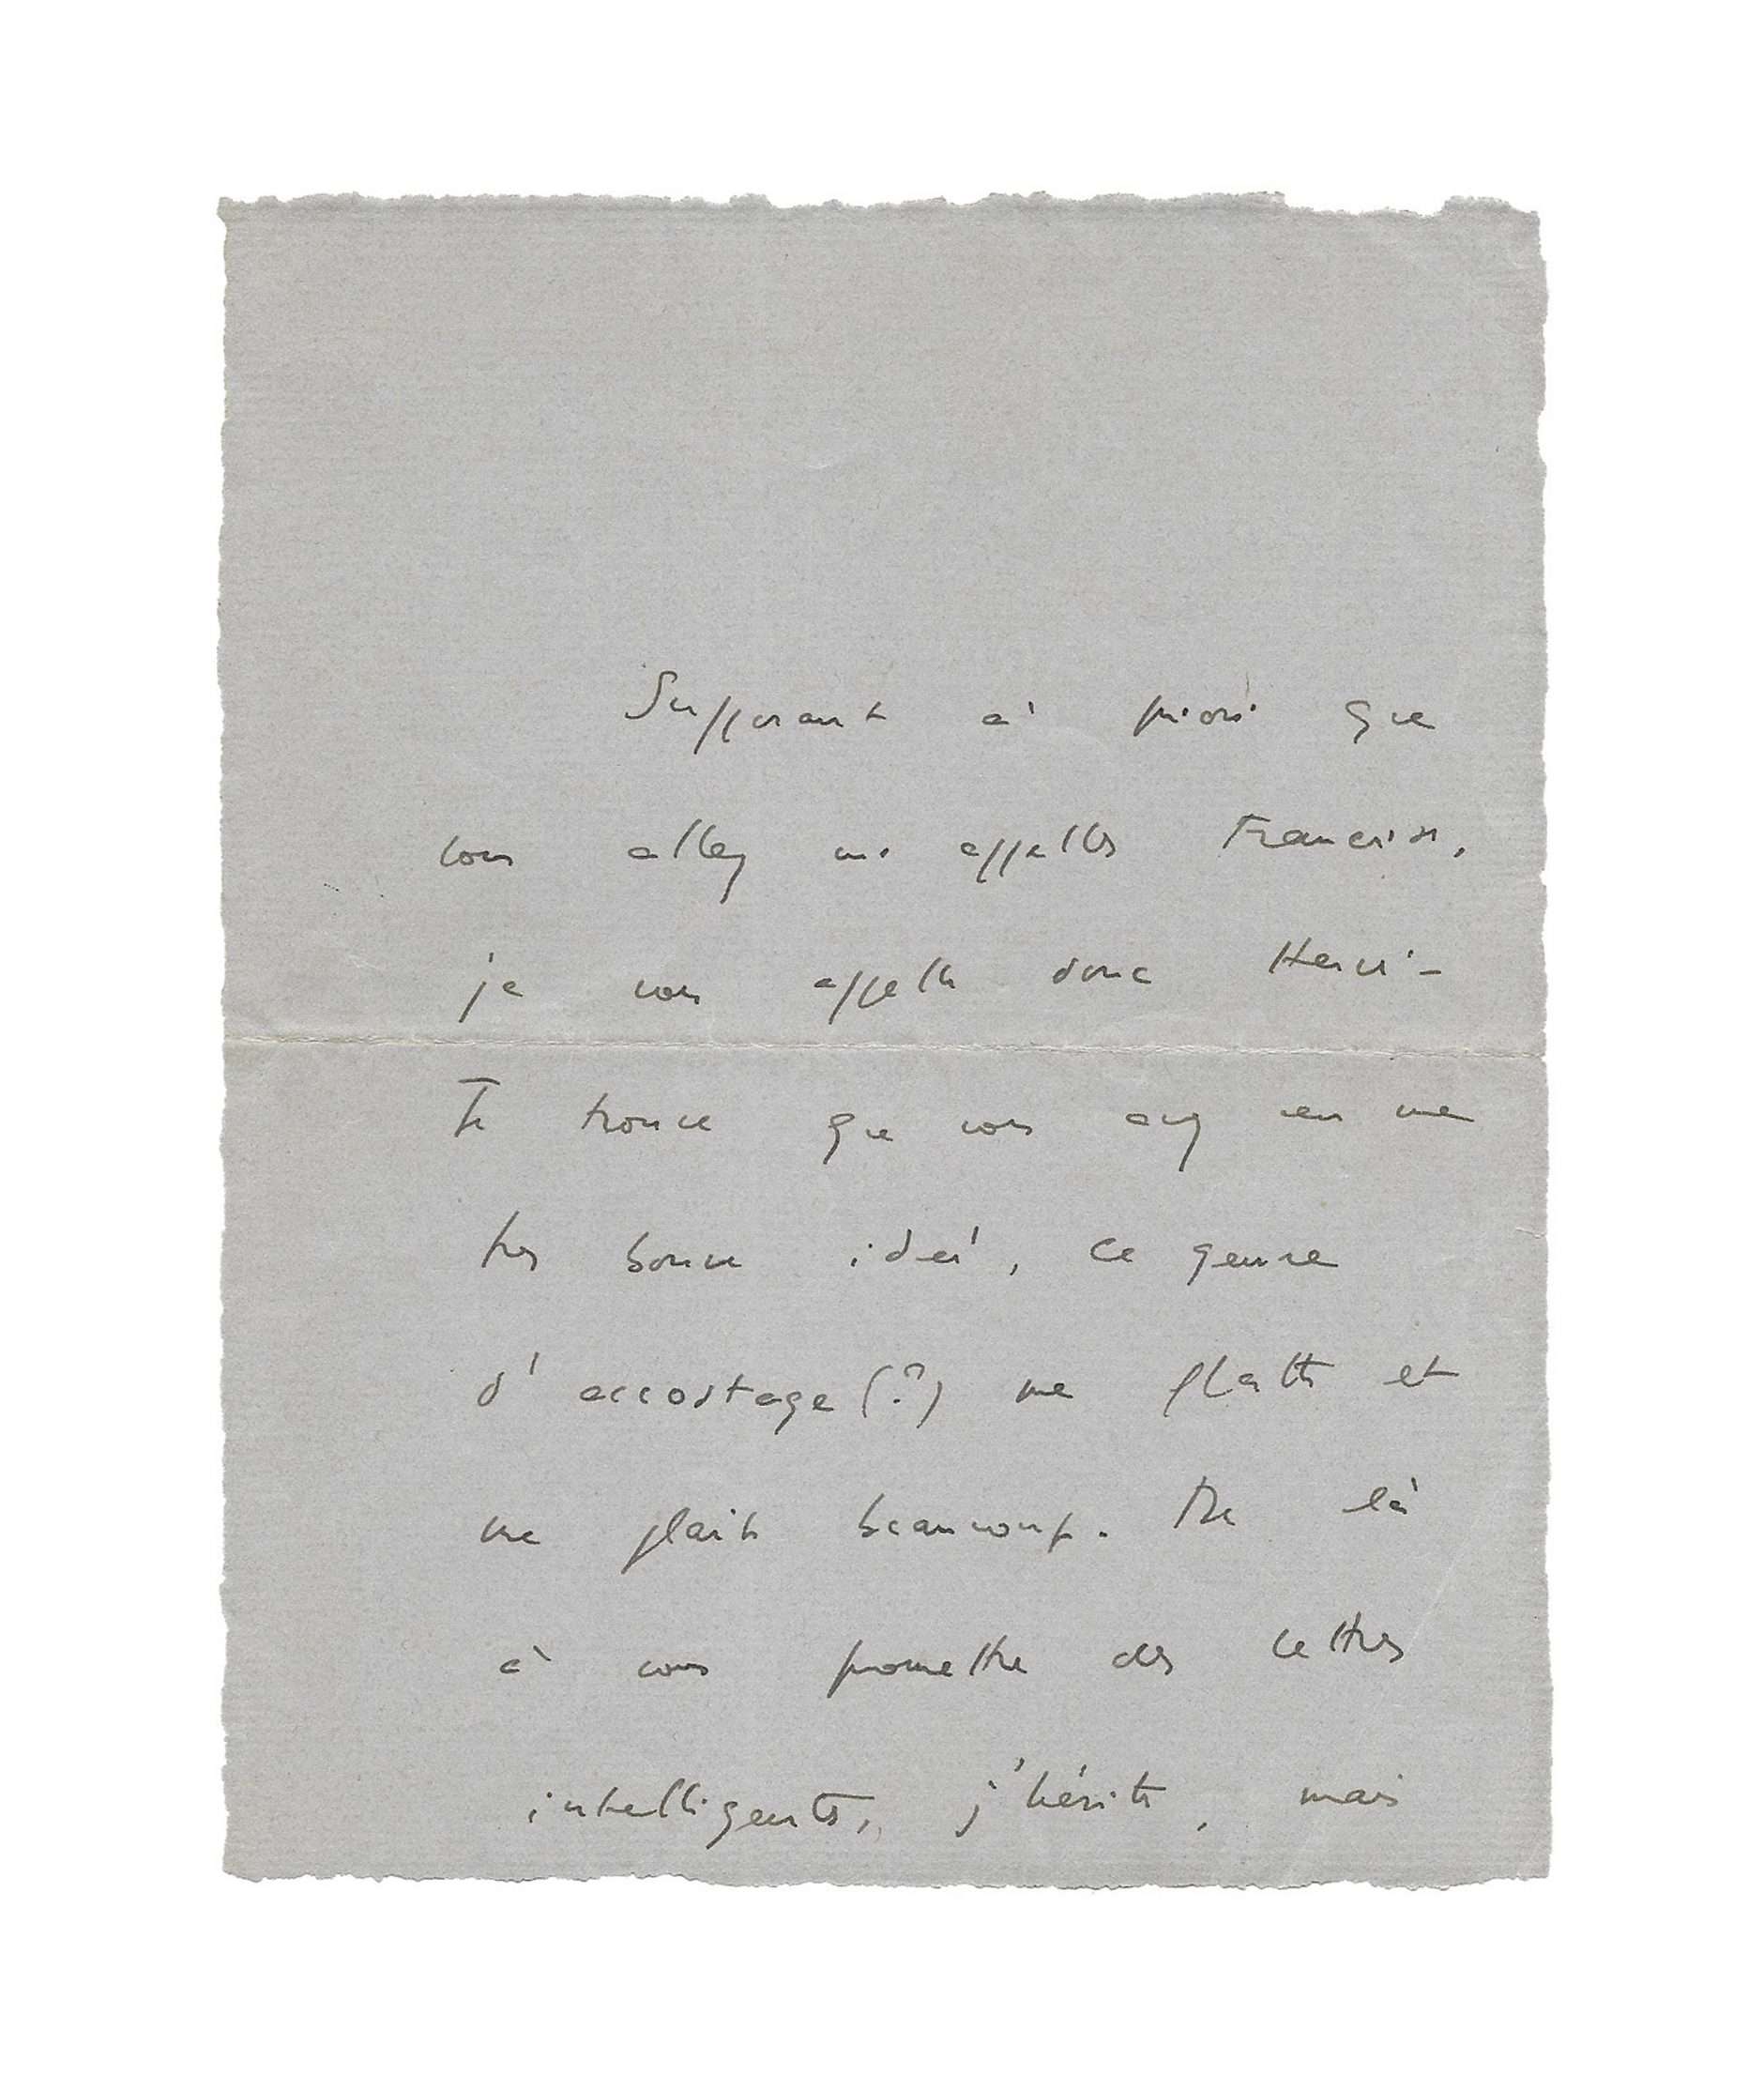 Supposant à priori que
vous allez m'appeller Francis,
je vous appelle donc Henri -
Je trouve que vous avez eu une
très bonne idée, ce genre
d'accostage (?) me flatte et
me plait beaucoup. De là
à vous promettre des lettres
intelligentes, j'hésite, mais